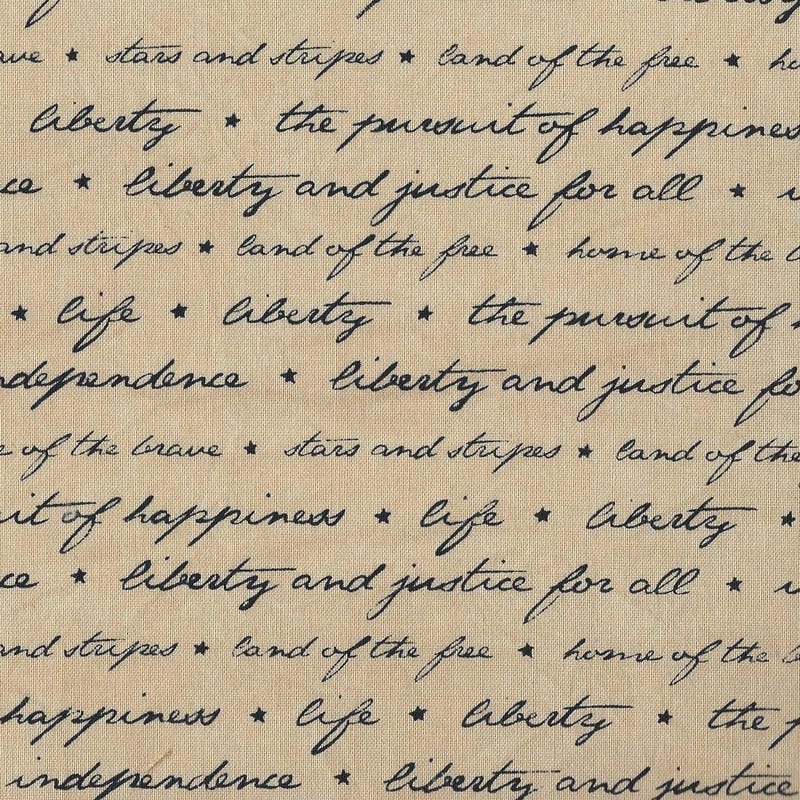 ave ★ stars and stripes ★ land of the free ★ ho
liberty ★ the pursuit of happines
ce ★ liberty and justice for all ★
and stripes ★ land of the free ★ home of the b
★ life ★ liberty ★ the pursuit of
ndependence ★ liberty and justice fo
of the brave ★ stars and stripes ★ land of the
uit of happiness ★ life ★ liberty ★
ce ★ liberty and justice for all ★
and stripes ★ land of the free ★ home of the b
happiness ★ life ★ liberty ★ the p
independence ★ liberty and justice